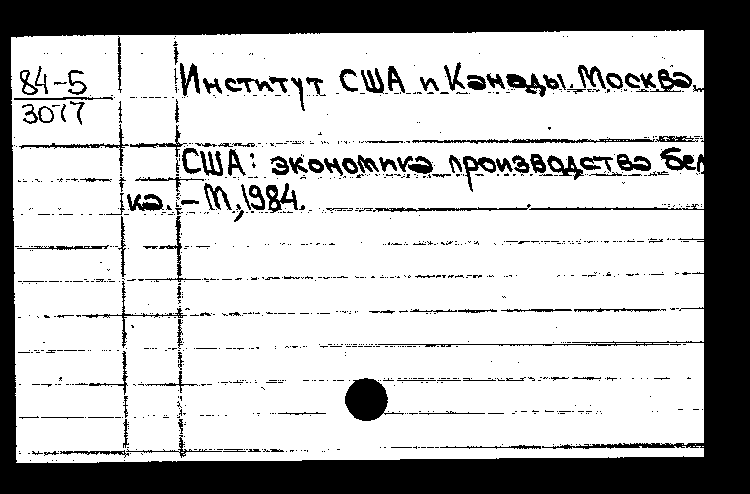 84-5
3077
Институт США и Канады. Москва.
США: экономика производства бел
ка. - М., 1984.